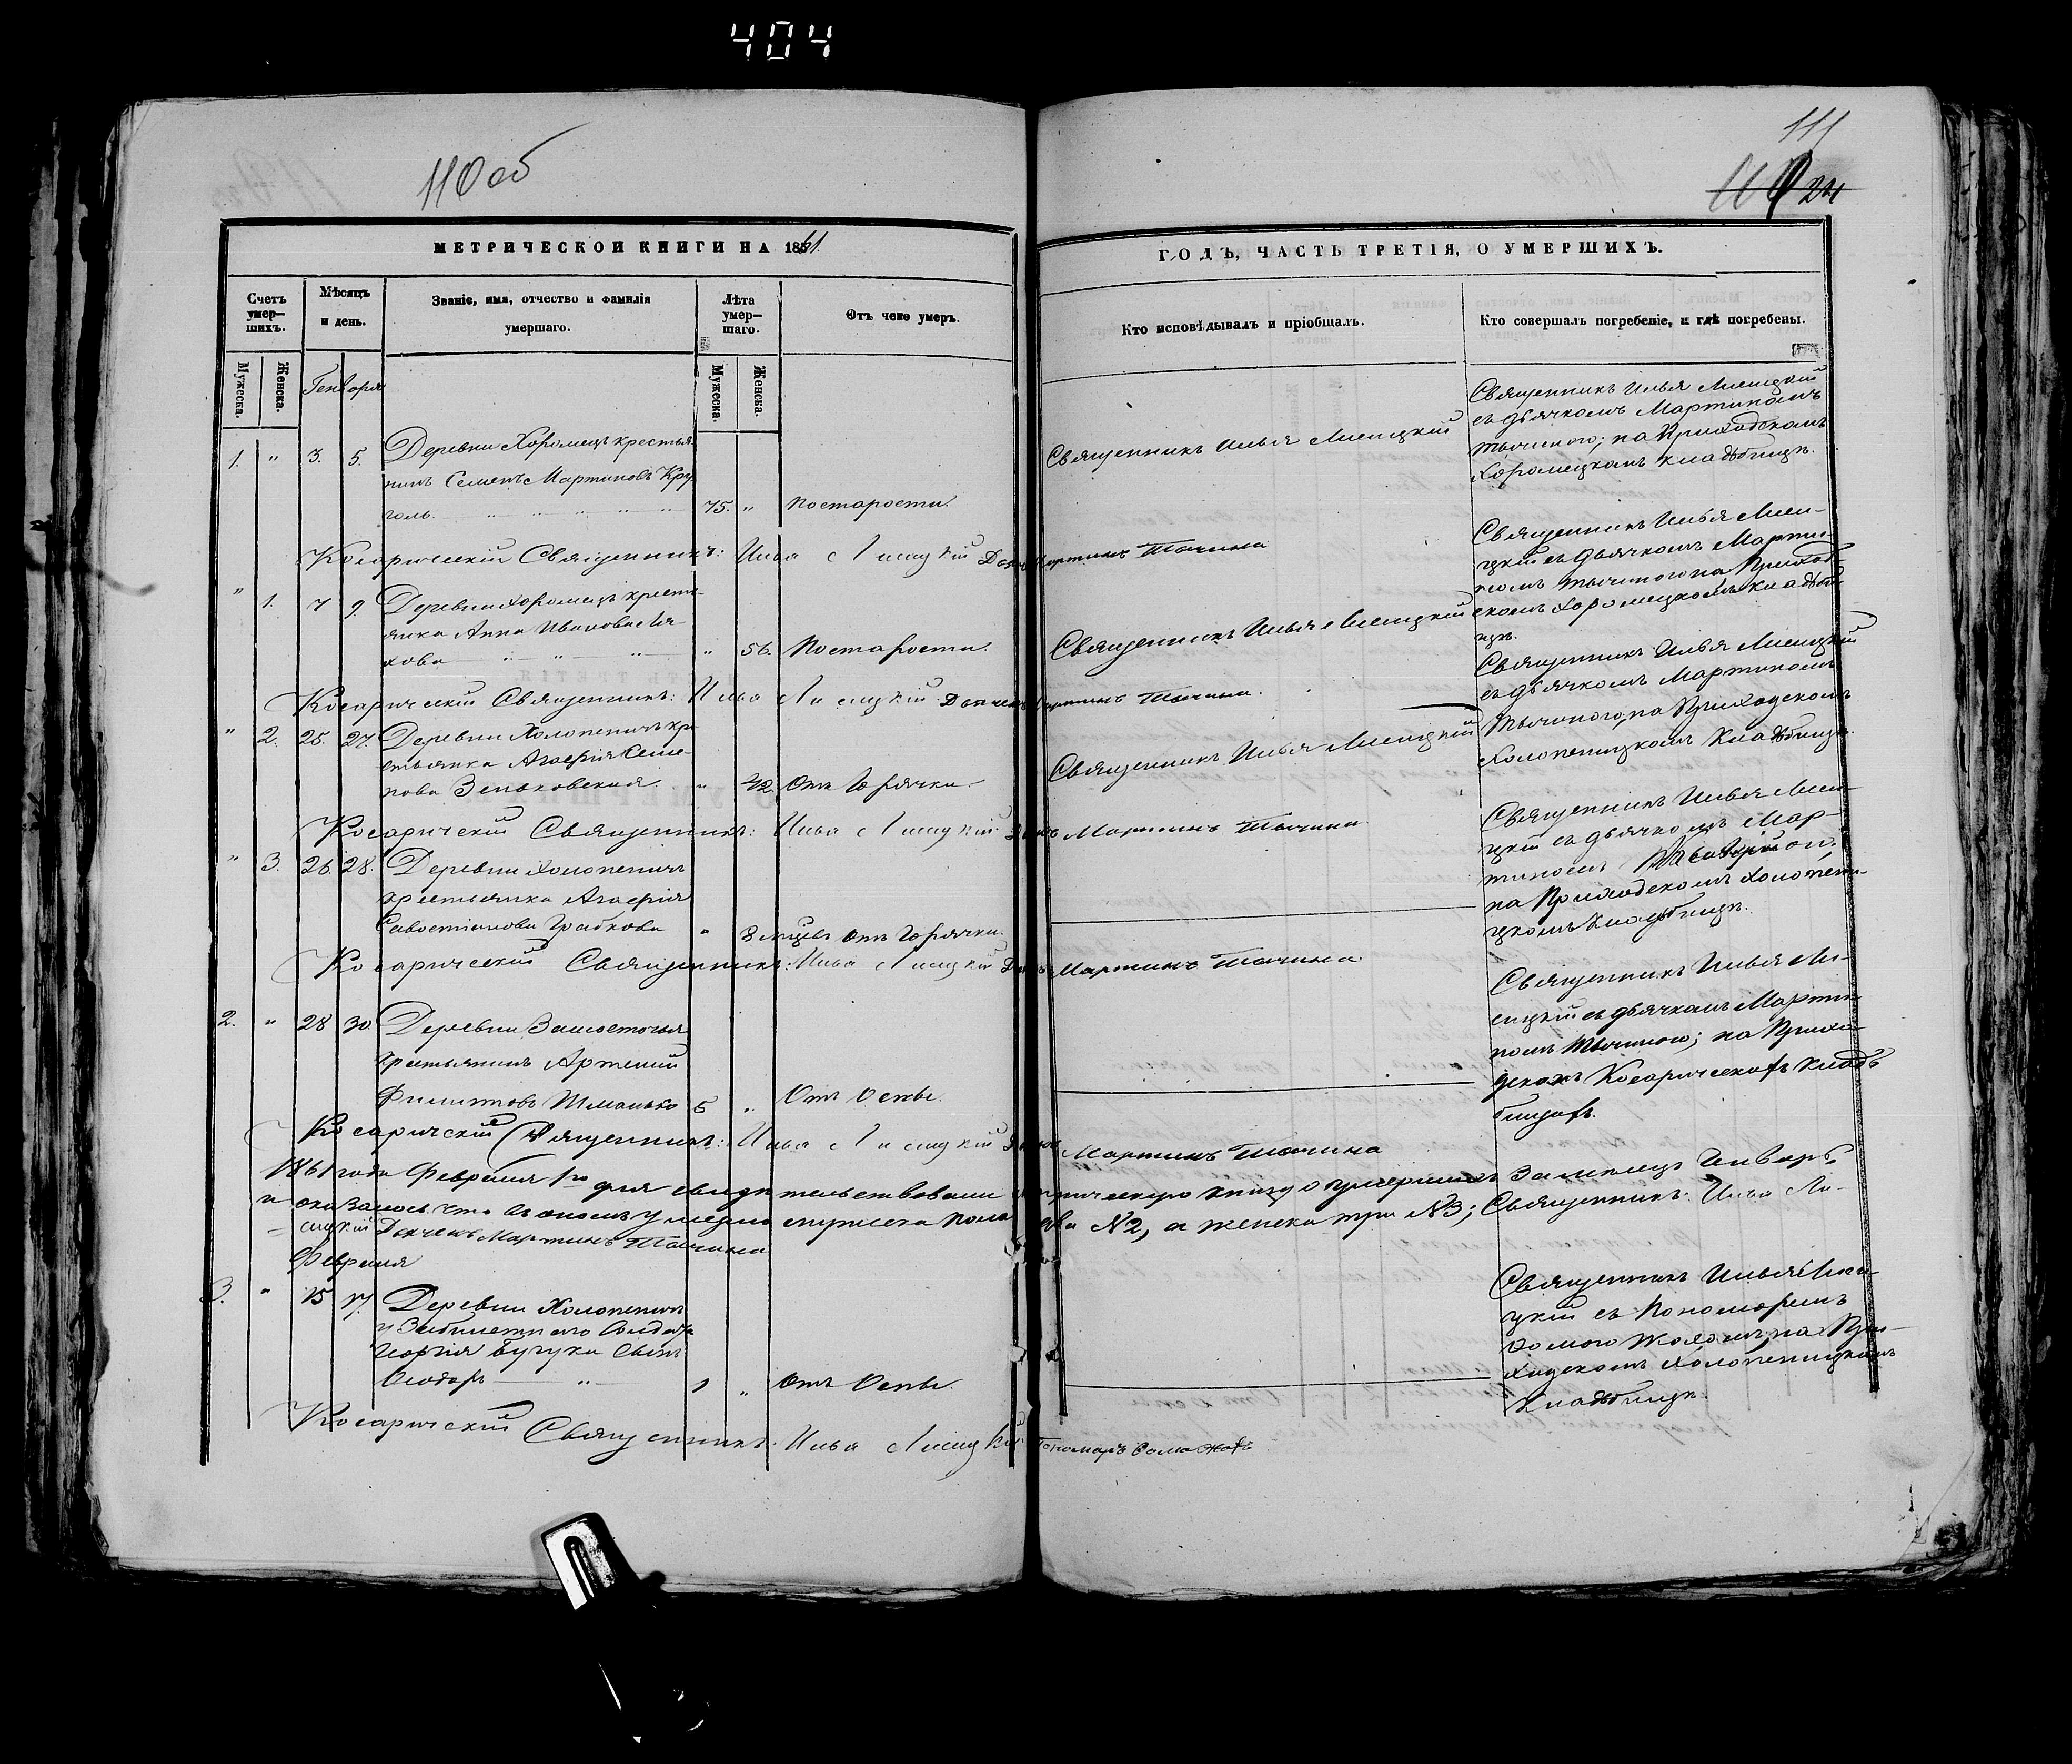 404
110 об
111
24
МЕТРИЧЕСКОЙ КНИГИ НА 1861.
ГОДЪ, ЧАСТЬ ТРЕТІЯ, О УМЕРШИХЪ.
Счетъ умер–шихъ.
Мѣсяцъ и день.
Званіе, имя, отчество и фамилія умершаго.
Лѣта умер–шаго.
Отъ чего умеръ.
Кто исповѣдывалъ и пріобщалъ.
Кто совершалъ погребеніе, и гдѣ погребены.
Мужеска.
Женска.
Генворя
Мужеска.
Женска.
1. " 3. 5. Деревни Хоромецъ крестья
нинъ Семенъ Мартиновъ Кру
голь. 75. " Постарости.
Священникъ Илья Лисицкій
Священникъ Илья Лисицкій
съ дьячкомъ Мартиномъ
Тычиною; на Приходскомъ
Хоромецкомъ кладбищѣ.
Косарическій Священникъ: Илья Лисицкій Дьячекъ Мартинъ Тычина
" 1. 7 9. Деревни Хоромецъ кресть
янка Анна Иванова Ля
хова " 56. Постарости.
Священникъ Илья Лисицкій
Священникъ Илья Лиси–
цкій съ дьячкомъ Марти–
номъ Тычиною на Приход–
скомъ Хоромецкомъ кладби
щѣ.
Косарическій Священникъ: Илья Лисицкій Дьячекъ Мартинъ Тычина.
" 2. 25. 27. Деревни Холопеничъ кре
стьянка Агафія Семе–
нова Зеньковская. " 42. Отъ Горячки.
Священникъ Илья Лисицкій
Священникъ Илья Лисицкій
съ дьячкомъ Мартиномъ
Тычиною, на Приходскомъ
Холопеницкомъ Кладбищѣ.
Косарическій Священникъ: Илья Лисицкій Мартинъ Тычина
" 3. 26. 28. Деревни Холопеничъ
крестьянка Агафія
Савостіянова Грибкова " 8 мѣцевъ Отъ Горячки.
Священникъ Илья Лиси–
цкій съ дьячкомъ Мар–
тиномъ
на Приходскомъ Холопени–
цкомъ Кладбищѣ.
Косарическій Священникъ: Илья Лисицкій Мартинъ Тычина
2. " 28 30 Деревни Замосточья
крестьянинъ Артемій
Филиповъ Шманько 5 " Отъ Оспы.
Священникъ Илья Ли–
сицкій съ дьячкомъ Марти
номъ Тычиною; на Прихо
дскомъ Косарическомъ кладъ
бищѣ.
Косарическій Священникъ: Илья Лисицкій Мартинъ Тычина
1861 года Февраля 1го дня свидѣтельствовали метрическую книгу о умершихъ за мѣсяцъ Январь,
и оказалось что въ ономъ умерло мужеска пола два №2, а женска три №3; Священникъ: Илья Ли–
сицкій Дьячекъ Мартинъ Тычина
Февраля
3. " 15 17. Деревни Холопеничъ
у Солдата
Георгія Бугука Сынъ
Ѳеодоръ " 1 " Отъ Оспы.
Священникъ Илья Лиси
цкій съ Пономоремъ
на При–
ходскомъ Холопеницкомъ
Кладбищѣ.
Косарическій Священникъ: Илья Лисицкій Пономарь